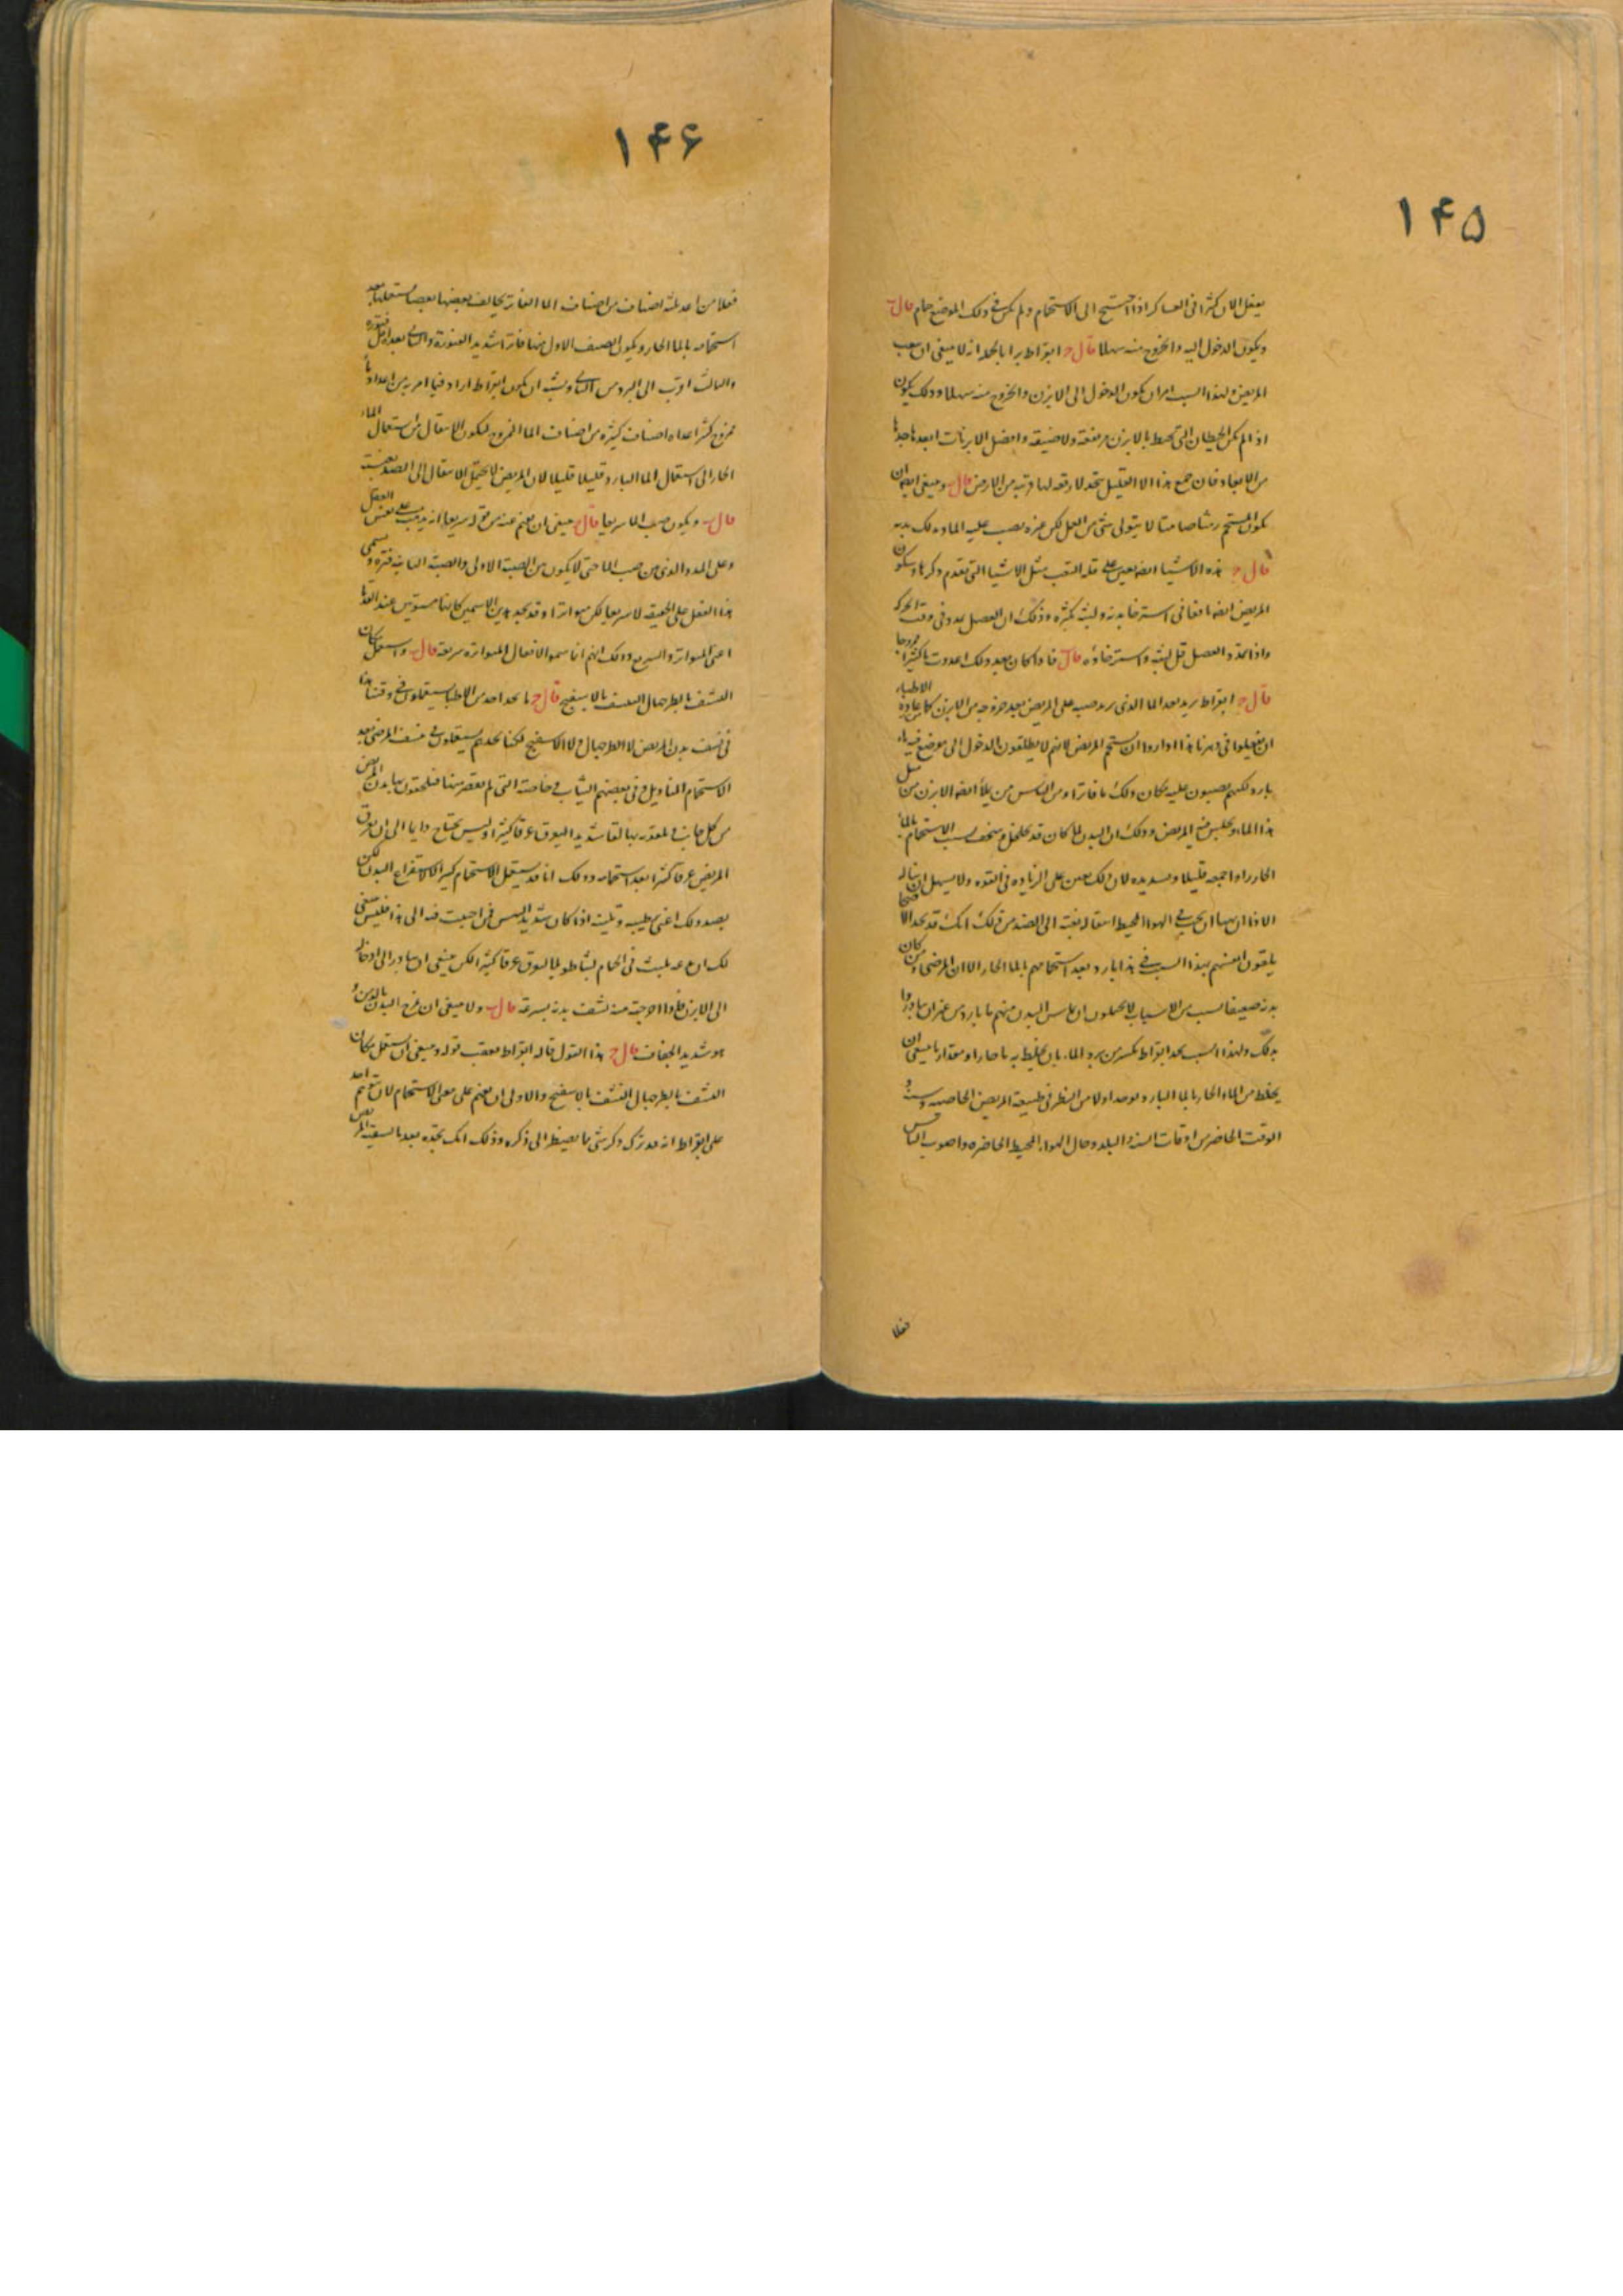 ١۴۵
يفعل الان كثيرا فى العساكر اذا احتيج الى الاستحمام ولم يكن فى ذلك الموضع حمام قال ب
ويكون الدخول اليه والخروج منه سهلا قال ج ابقراط يرا بالجملة انه لا ينبغى ان يتعب
المريض ولهذا السبب امر ان يكون الدخول الى الابزن والخروج منه سهلا وذلك يكون
اذا لم يكن الحيطان التى تحيط بالابزن مرتفعة ولا ضيقة وافضل الابزنات ابعدها جدا
من الابعاد فان جميع هذا الا القليل تجد لا رفعة لها قريبة من الارض قال ب وينبغى ايضا ان
يكون المستحم صامتا لا يتولى شئ من العمل لكن غيره يصب عليه الماء ويدلك بدنه
قال ج هذه الاشيا ايضا تعين على قلة التعب مثل الاشيا التى تقدم ذكرها وسكون
المريض ايضا نافعا فى استرخا بدنه ولينه كثيره وذلك ان العضل يمدد فى وقت الحركة
واذا تمدد العضل قل لينه واسترخاؤه قال ب فاذا كان بعد ذلك اعددت ما كثيرا ممزوجا
قال ج ابقراط يريد بهذا الما الذى يريد صبه على المريض بعد خروجه من الابزن كما من عادة الاطباء
ان يفعلوا فى دهرنا هذا اذا ارادوا ان يستحم المريض لانهم لا يطلقون الدخول الى موضع فيه ماء
بارد لكنهم يصبون عليه مكان ذلك ما فاترا ومن الناس من يملأ ايضا الابزن من مثل
هذا الماء ويجلس فيه المريض وذلك ان البدن لما كان قد تخلخل وسخف بسبب الاستحمام بالماء
الحار راوا جمعه قليلا وتشديده لان ذلك يعين على الزيادة فى القوة ولا يسهل ان يناله
الاذا ان بها ان يجرى فى الهواء المحيط انتقاله بغتة الى الضد من ذلك انك قد تجد الاصحا
يلقون انفسهم بهذا السبب فى ما بارد بعد استحمامهم بالما الحار الا ان المرضى ومن كان
بدنه ضعيفا بسبب من الاسباب لا يحتملون ان يماس البدن منهم ما بارد من غير ان يتاذوا
بذلك ولهذا السبب تجد ابقراط يكسر من برد الماء بان يخلط به ما حارا ومقدار ما ينبغى ان
يخلط من الماء الحار بالما البارد يوجد اولا من النظر فى طبيعة المريض الخاصيه وسنه و
الوقت الحاضر من اوقات السنة والبلد وحال الهواء المحيط الحاضره واصوب الناس
فعلا
١۴۶
فعلا من اعد ثلثة اصناف من اصناف الما الفاتر يخالف بعضها بعضا يستعملها بعد
استحمامه بالما الحار ويكون الصنف الاول منها فاترا شديد الفتورة والثانى بعده اقل فتورة
والثالث اقرب الى البرد من الثانى ويشبه ان يكون ابقراط اراد فيما امر به من اعداد ما
ممزوج كثير اعداد اصناف كثيره من اصناف الما الممزوج ليكون الانتقال من استعمال الماء
الحار الى استعمال الما البارد قليلا قليلا لان المريض لا يحتمل الانتقال الى الضد بغتة
قال ب ويكون صب الما سريعا قال ج ينبغى ان يفهم عنه من قوله سريعا انه يدل على نفس الفعل
وعلى المدد الذى من صب الما حتى لا يكون بين الصبة الاولى والصبة الثانية فترة ويسمى
هذا الفعل على الحقيقه لا سريعا لكن متواترا وقد تجد هذين الاسمين كانهما مستويين عند القدما
اعنى المتواتر والسريع وذلك انهم انما سموا الافعال المتواتره سريعة قال ب واستعمل مكان
النشف بالطرجهال النشف بالاسفنج قال ج ما نجد احد من الاطبا يستعملون فى وقتنا هذا
فى نشف بدن المريض لا الطرجهال ولا الاسفنج لكنا نجدهم يستعملون فى نشف المرضى بعد
الاستحمام المناديل وفى بعضهم الثياب خاصة التى لم تقصر منها فيلحفون بها بدن المريض
من كل جانب ويلقونه بها لفا شديدا ليعرق عرقا كثيرا وليس يحتاج دايما الى ان يعرق
المريض عرقا كثيرا بعد استحمامه وذلك انا قد نستعمل الاستحمام كثيرا لا لاستفراغ البدن لكن
بضد ذلك اعنى ترطيبه وتليينه اذا كان شديد اليبس فمن احتجت فيه الى هذا فليس ينبغى
لك ان تدعه يلبث فى الحمام نشاطا ولما ليعرق عرقا كثيرا لكن ينبغى ان تبادر الى ادخاله
الى الابزن فاذا اخرجته منه نشفت بدنه بسرعة قال ب ولا ينبغى ان تمرخ البدن بالدهن و
هو شديد الجفاف قال ج هذا القول قاله ابقراط بعقب قوله وينبغى ان يستعمل مكان
النشف بالطرجهال النشف بالاسفنج والاولى ان يفهم على معنى الاستحمام لان يتوهم احد
على ابقراط انه قد ترك ذكر شئ مما يضطر الى ذكره وذلك انك تجده بعد ما يسقيه المريض